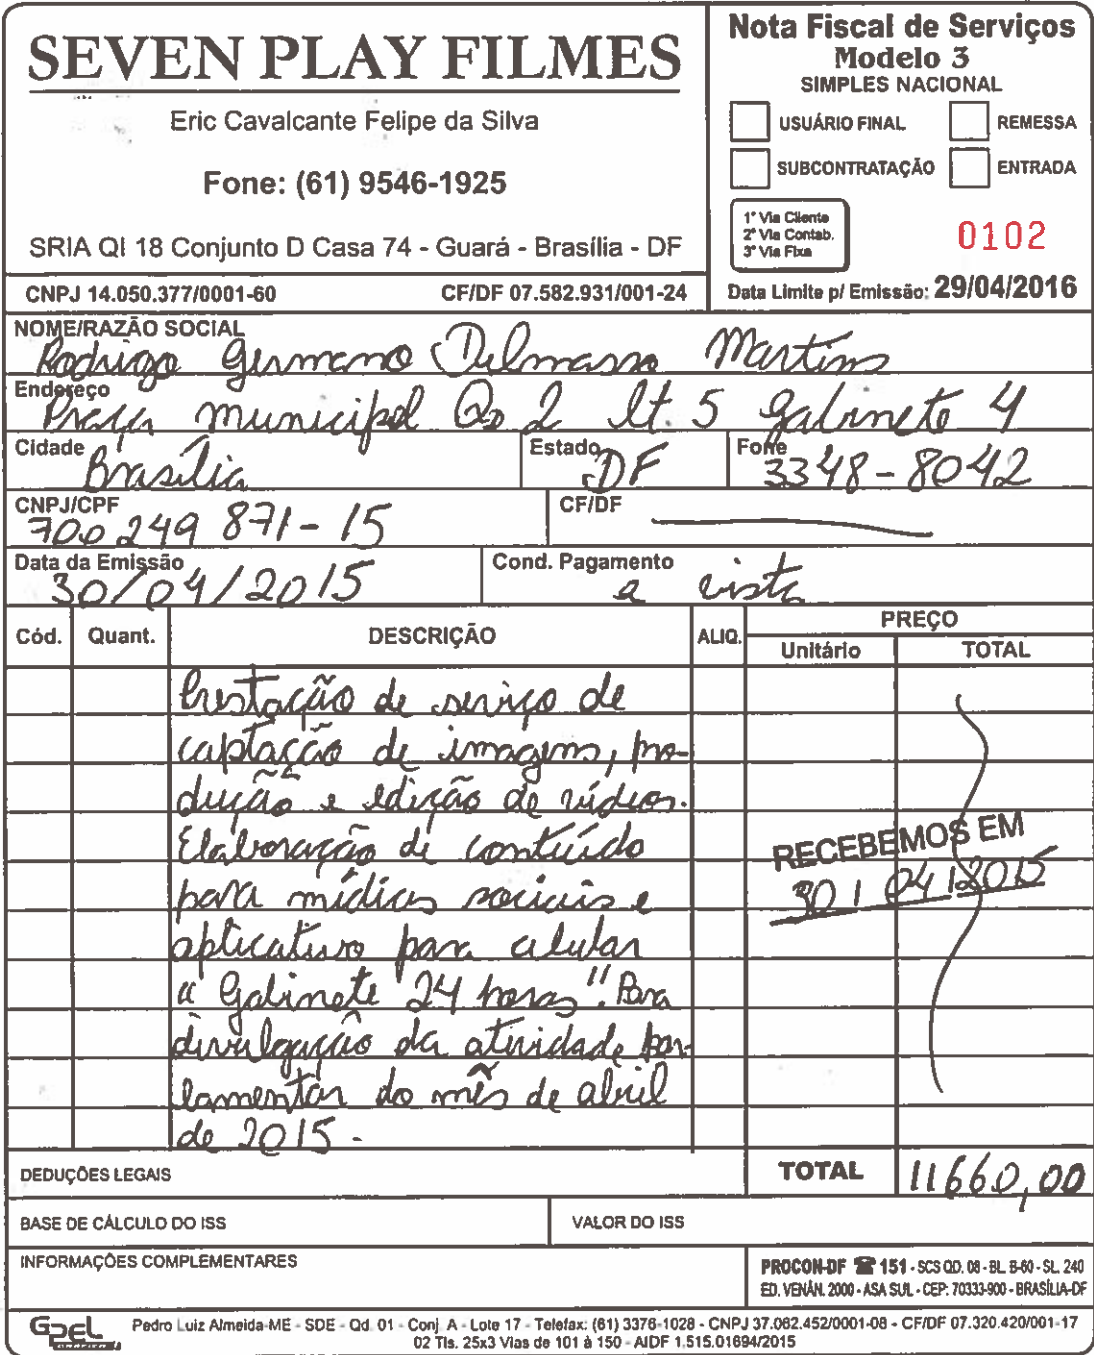 SEVEN PLAY FILMES
Eric Cavalcante Felipe da Silva
Fone: (61) 9546-1925
SRIA QI 18 Conjunto D Casa 74 - Guará - Brasília - DF
CNPJ 14.050.377/0001-60 CF/DF 07.582.931/001-24
Nota Fiscal de Serviços
Modelo 3
SIMPLES NACIONAL
USUÁRIO FINAL REMESSA
SUBCONTRATAÇÃO ENTRADA
1ª Via Cliente
2ª Via Contab.
3ª Via Fixa
0102
Data Limite p/ Emissão: 29/04/2016
NOME/RAZÃO SOCIAL
Rodrigo Germano Delmasso Martins
Endereço
Praça Municipal Qd 2 lt 5 Gabinete 4
Cidade Brasília Estado DF Fone 3348-8042
CNPJ/CPF 700 249 871-15 CF/DF
Data da Emissão 30/04/2015 Cond. Pagamento a vista
Cód. Quant. DESCRIÇÃO ALIQ. PREÇO
Unitário TOTAL
Prestação de serviço de
captação de imagens, pro-
dução e edição de vídeos.
Elaboração de conteúdo
para mídias sociais e
aplicativo para celular
"Gabinete 24 horas". Para
divulgação da atividade par-
lamentar do mês de abril
de 2015.
RECEBEMOS EM
30/04/2015
DEDUÇÕES LEGAIS TOTAL 11660,00
BASE DE CÁLCULO DO ISS VALOR DO ISS
INFORMAÇÕES COMPLEMENTARES
PROCON-DF ☎ 151 - SCS QD. 08 - BL. B-60 - SL. 240
ED. VENÂN. 2000 - ASA SUL - CEP: 70333-900 - BRASÍLIA-DF
GPEL
Pedro Luiz Almeida-ME - SDE - Qd. 01 - Conj. A - Lote 17 - Telefax: (61) 3376-1028 - CNPJ 37.062.452/0001-08 - CF/DF 07.320.420/001-17
02 Tls. 25x3 Vias de 101 à 150 - AIDF 1.515.01694/2015